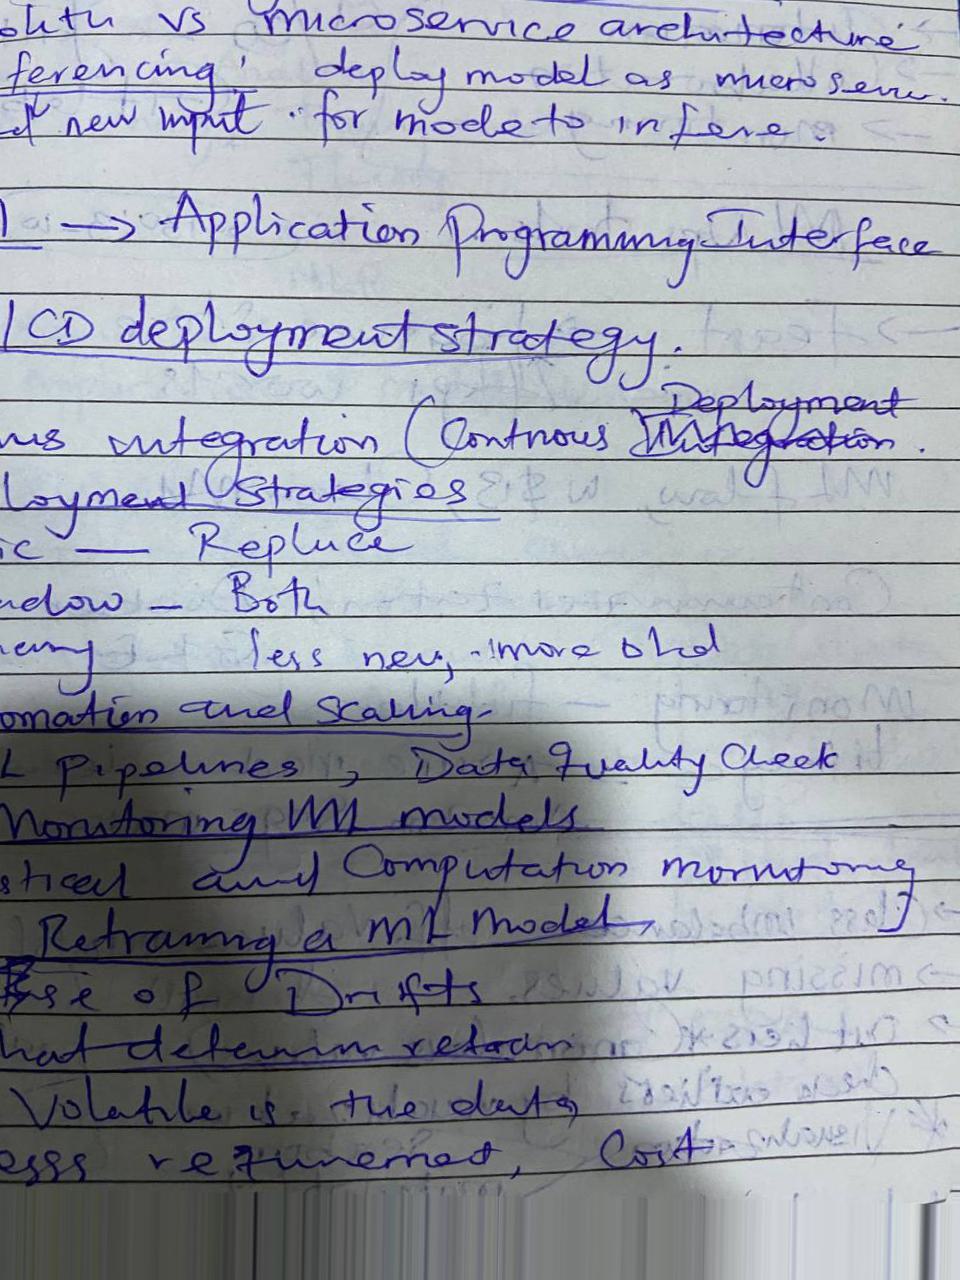 olith vs microservice architecture
ferencing: deploy model as microserv.
new input for mode to infere.
I → Application Programming Interface
/ CD deployment strategy.
Deployment
ous integration (Continous Integration.
loyment Strategies
ic — Replace
adow — Both
nary less new, more old
omation and Scaling
L pipelines, Data Quality Check
Monitoring ML models
stical and Computation monitoring
Retraining a ML Model
se of Drifts
hat determin retrain
Volatile is the data,
esss requirement, Cost